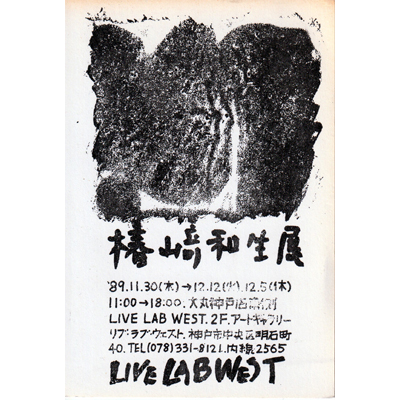 椿﨑和生展
'89.11.30(木)→12.12(火).12.5(休)
11:00→18:00.大丸神戸店東側
LIVE LAB WEST.2F.アートギャラリー
リブ・ラブ・ウェスト.神戸市中央区明石町
40.TEL(078)331-8121.内線2565
LIVE LAB WEST